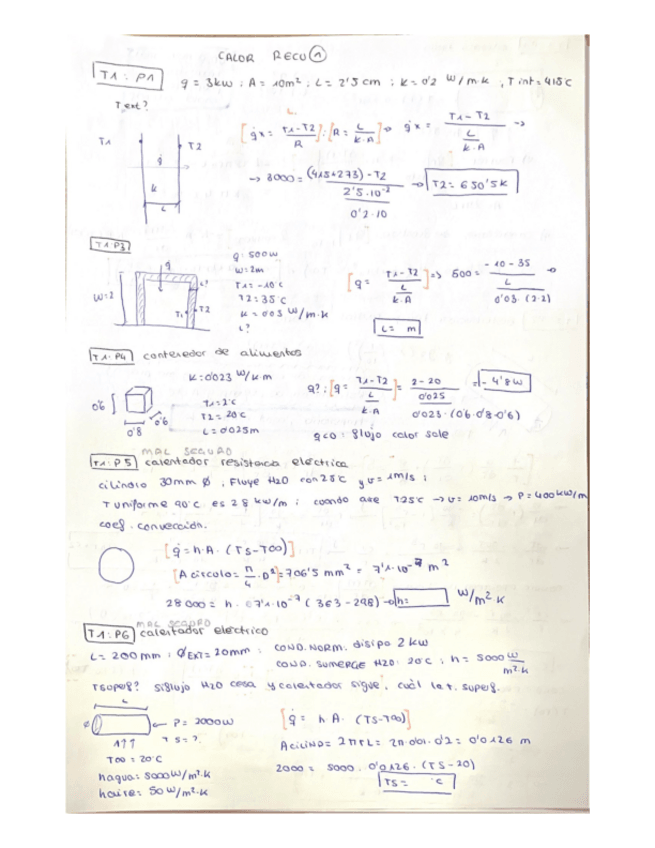 CALOR RECU ①
T1: P1 q = 3kw ; A = 10m² ; L = 2'5 cm ; k = 0'2 W/m·k , T int = 415°C
T ext?
T1 T2 q k L
[q̇x = T1-T2 / R] ; [R = L / k·A] → q̇x = T1-T2 / (L / k·A) →
→ 3000 = (415+273)-T2 / (2'5·10⁻² / 0'2·10) → T2 = 650'5 k
T1: P3
q = 500w
w = 2m
T1 = -10°C
T2 = 35°C
k = 0'03 W/m·k
L?
W=2 q L? T1 T2
[q = T1-T2 / (L / k·A)] => 500 = -10-35 / (L / 0'03·(2·2))
L = m
T1: P4 contenedor de alimentos
k = 0'023 W/k·m
T1 = 2°C
T2 = 20°C
L = 0'025m
0'6 0'8 0'6
q? : [q = T1-T2 / (L / k·A)] = 2-20 / (0'025 / 0'023·(0'6·0'8·0'6)) = -4'8W
q<0 : flujo calor sale
MAL SEGURO
T1: P5 calentador resistencia eléctrica
cilindro 30mm ø ; Fluye H2O con 25°C y v = 1m/s ;
T uniforme 90°C es 28 kw/m ; cuando aire T25°C → v = 10m/s → P = 400kW/m
coef. convección.
[q̇ = h·A·(Ts-T∞)]
[A circulo = π/4 · D²] = 706'5 mm² = 7'1·10⁻⁷ m²
28000 = h · 7'1·10⁻⁷ (363-298) → h = W/m²·k
MAL SEGURO
T1: P6 calentador eléctrico
L = 200mm ; øEXT = 20mm : COND. NORM. disipa 2 kw
COND. SUMERGE H2O: 20°C ; h = 5000 W/m²·k
Tsuperf? Si flujo H2O cesa y calentador sigue, cuál la t. superf.
L
ø P = 2000W
T S = ?
T∞ = 20°C
hagua: 5000 W/m²·k
haire: 50 W/m²·k
[q̇ = h A · (Ts-T∞)]
A cilind = 2πrL = 2π·0'01·0'2 = 0'0126 m
2000 = 5000 · 0'0126 · (Ts-20)
Ts = °C